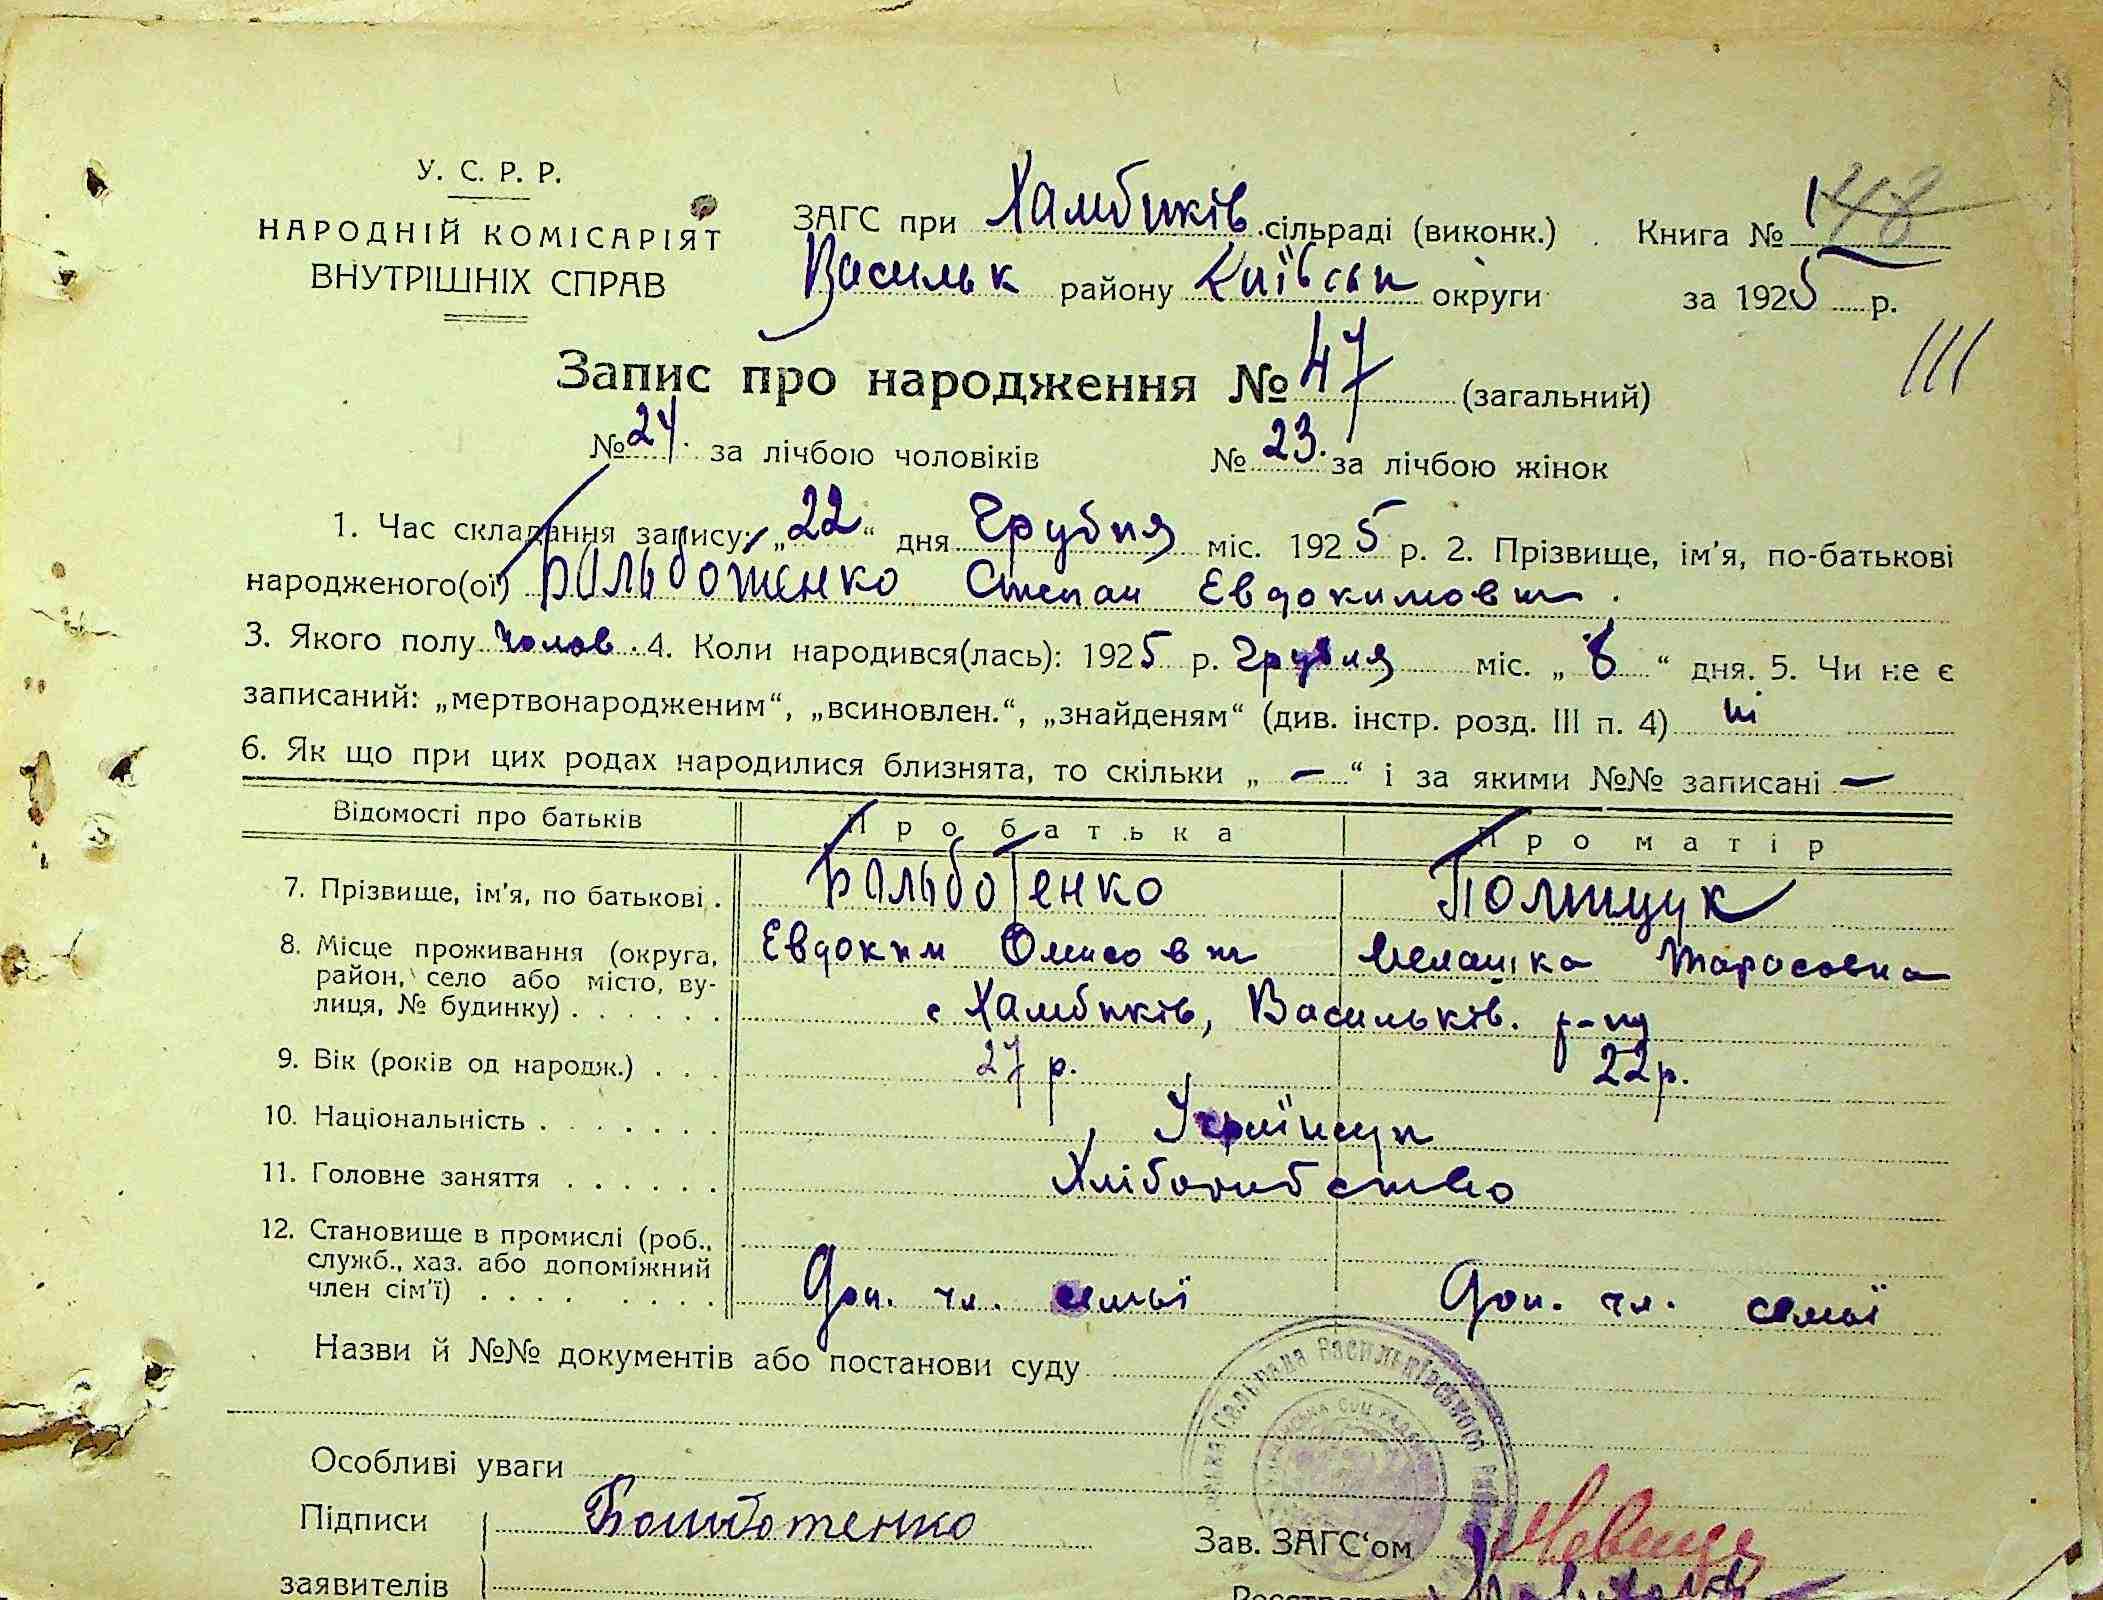 У. С. Р. Р.
НАРОДНІЙ КОМІСАРІЯТ
ВНУТРІШНІХ СПРАВ
ЗАГС при Хамбиків сільраді (виконк.) Книга № 1 148
Васильк району Київськ округи за 1925 р.
III
Запис про народження № 47 (загальний)
№ 24. за лічбою чоловіків № 23. за лічбою жінок
1. Час складання запису: „22“ дня Грудня міс. 1925 р. 2. Прізвище, ім’я, по-батькові
народженого(ої) Бальботенко Степан Евдокимович.
3. Якого полу чолов. 4. Коли народився(лась): 1925 р. Грудня міс. „8“ дня. 5. Чи не є
записаний: „мертвонародженим“, „всиновлен.“, „знайденям“ (див. інстр. розд. III п. 4) ні
6. Як що при цих родах народилися близнята, то скільки „ — “ і за якими №№ записані —
Відомості про батьків Про батька Про матір
7. Прізвище, ім’я, по батькові . Бальботенко Полищук
Евдоким Омисович Мелашка Тарасовна
8. Місце проживання (округа,
район, село або місто, ву-
лиця, № будинку) . . . . . . с Хамбиків, Васильків. р-ну
9. Вік (років од народж.) . . . 27 р. 22 р.
10. Національність . . . . . . . Українци
11. Головне заняття . . . . . . Хліборобство
12. Становище в промислі (роб.,
служб., хаз. або допоміжний
член сім’ї) . . . . . . . . Доп. чл. семьї Доп. чл. семьї
Назви й №№ документів або постанови суду
Сельрада Васильківського
Особливі уваги
Підписи Бальботенко
Зав. ЗАГС‘ом
заявителів